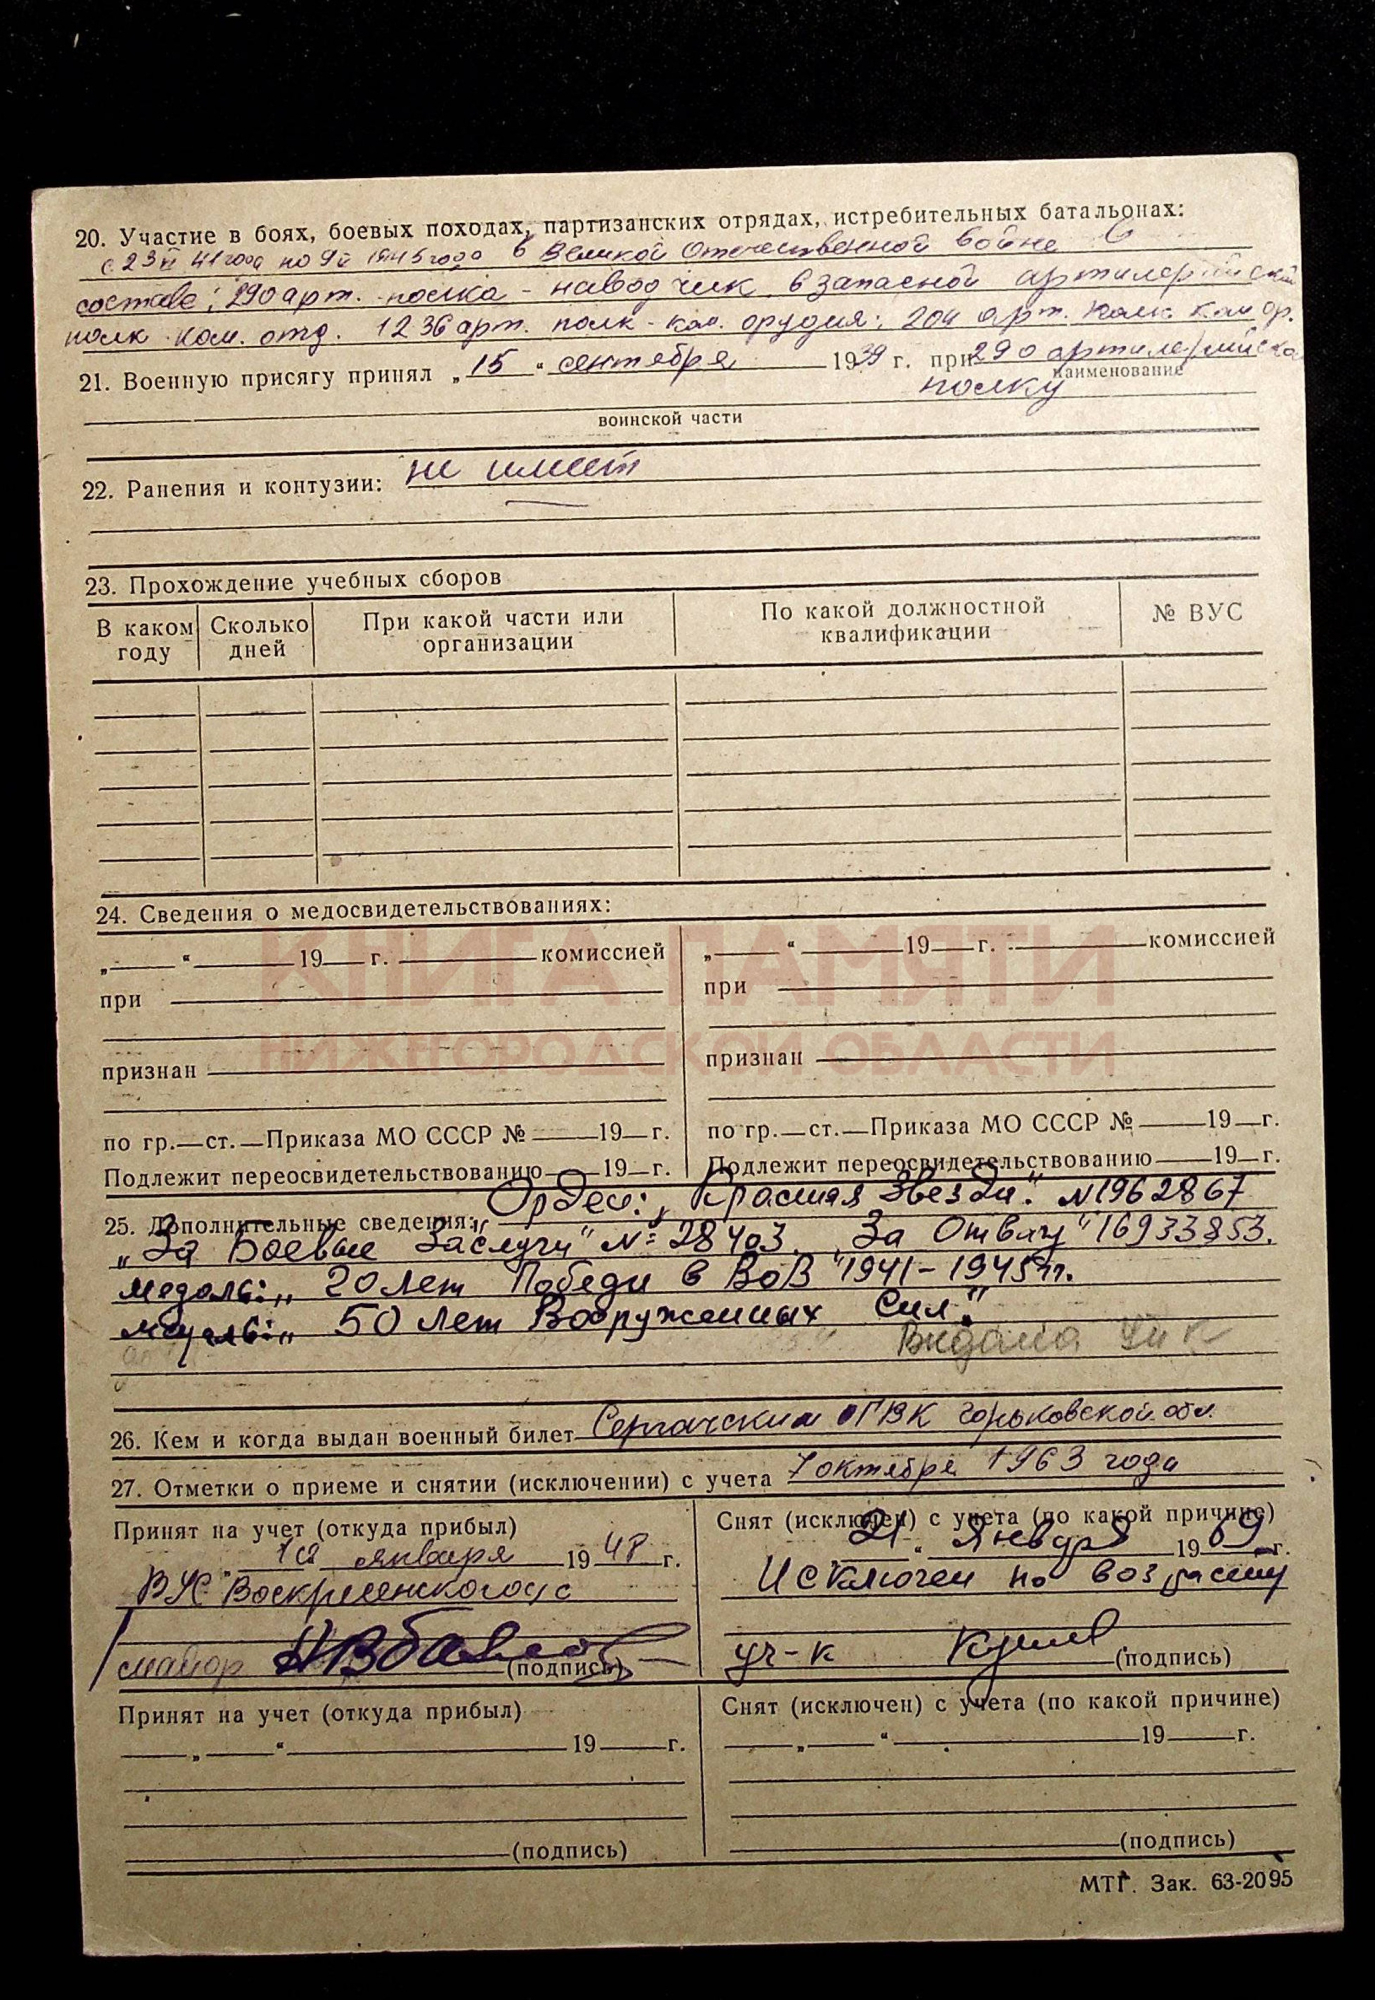 20. Участие в боях, боевых походах, партизанских отрядах, истребительных батальонах:
с 23 41 года по 9 1945 года в Великой Отечественной войне в
составе: 290 арт. полка - наводчик в запасной артилерийской
полк ком. отд. 1236 арт. полк - ком. орудия; 204 арт. полк ком ор.
21. Военную присягу принял „15“ сентября 1939 г. при 290 артилерийска
наименование
полку
воинской части
22. Ранения и контузии: не имеет
23. Прохождение учебных сборов
В каком году Сколько дней При какой части или организации По какой должностной квалификации № ВУС
24. Сведения о медосвидетельствованиях:
КНИГА ПАМЯТИ
НИЖЕГОРОДСКОЙ ОБЛАСТИ
„ “ 19 г. комиссией „ “ 19 г. комиссией
при при
признан признан
по гр. ст. Приказа МО СССР № 19 г. по гр. ст. Приказа МО СССР № 19 г.
Подлежит переосвидетельствованию 19 г. Подлежит переосвидетельствованию 19 г.
25. Дополнительные сведения: Орден: „Красная Звезда". N1962867
„За Боевые Заслуги" N=28403. За Отвагу" 16933853.
медаль: „20 лет Победи в ВоВ "1941-1945 гг.
медаль: „50 лет Вооруженных Сил"
Видана
26. Кем и когда выдан военный билет Сергачским ОГВК Горьковской обл.
27. Отметки о приеме и снятии (исключении) с учета 7 октября 1963 года
Принят на учет (откуда прибыл) Снят (исключен) с учета (по какой причине)
января 1948 г. 21 “ января 1969 г.
Воскресенского Исключен по возрасту
майор (подпись) уч-к (подпись)
Принят на учет (откуда прибыл) Снят (исключен) с учета (по какой причине)
„ “ 19 г. „ “ 19 г.
(подпись) (подпись)
МТГ. Зак. 63-2095